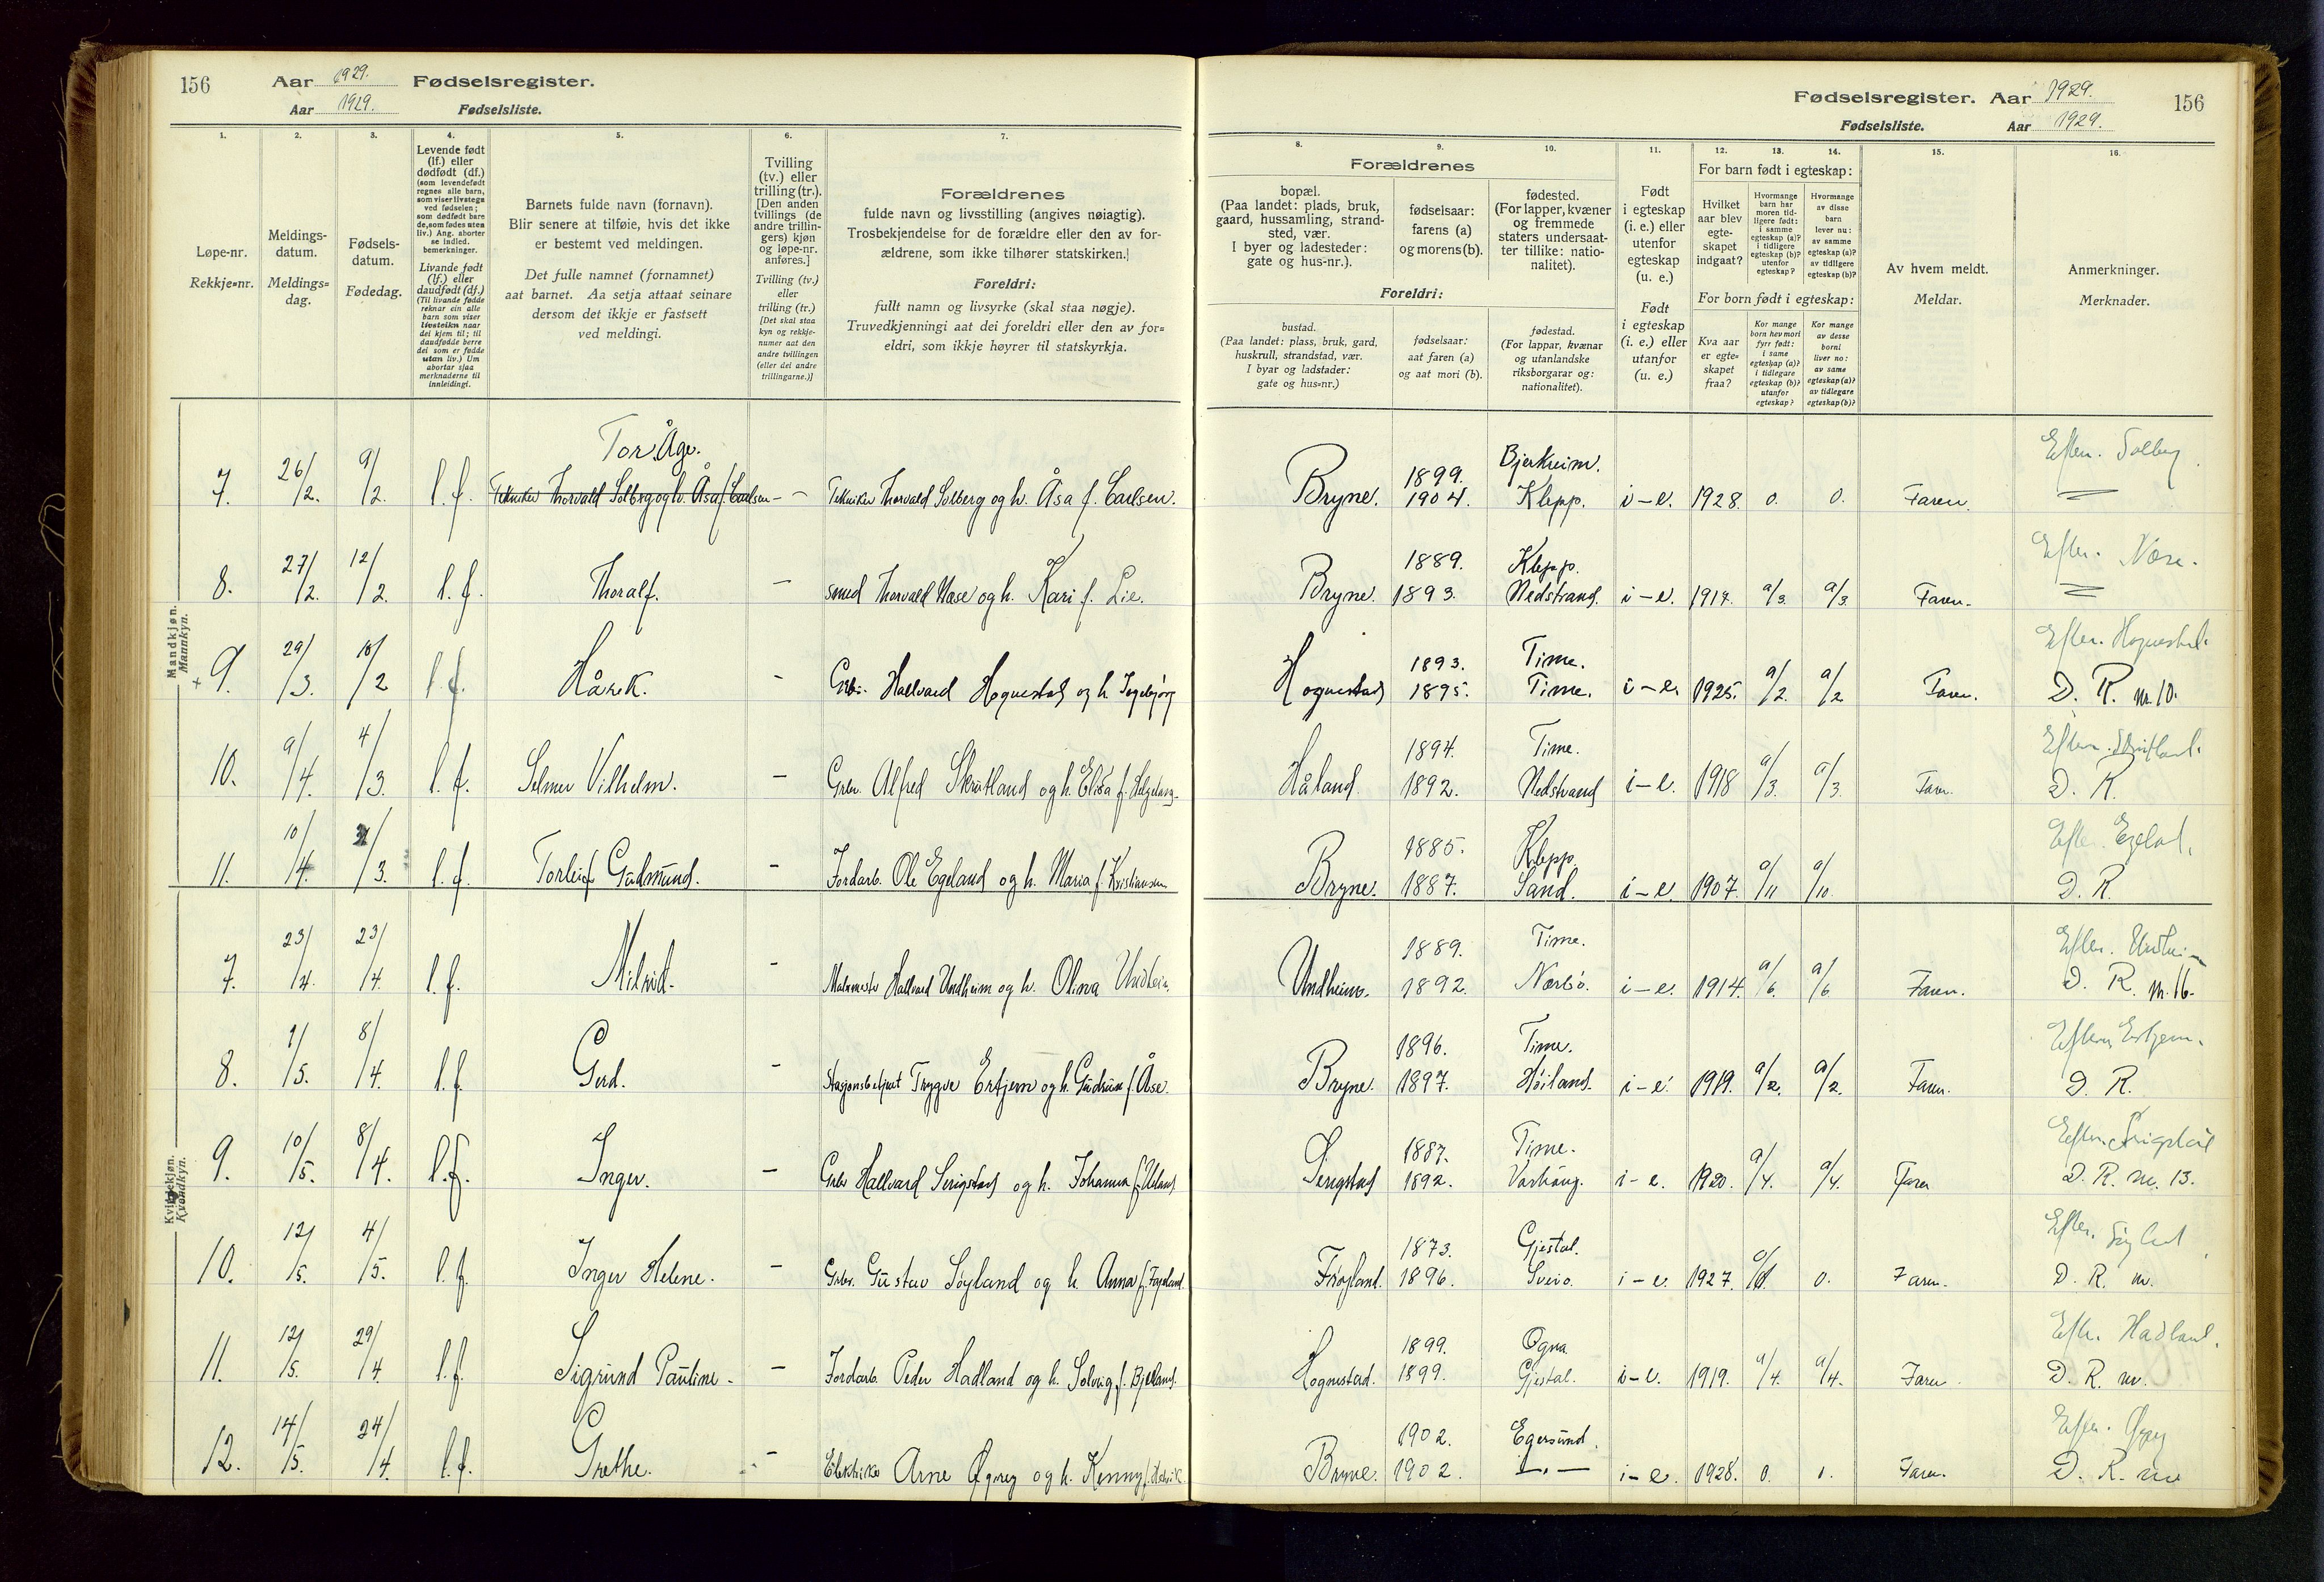 156 Aar 1929. Fødselsregister.
Aar 1929. Fødselsliste.
Fødselsregister. Aar 1929. 156
Fødselsliste. Aar 1929.
1. 2. 3. 4. 5. 6. 7.
8. 9. 10. 11. 12. 13. 14. 15. 16.
Løpe-nr.
Rekkje=nr.
Meldings-
datum.
Meldings=
dag.
Fødsels-
datum.
Fødedag.
Levende født
(lf.) eller
dødfødt (df.)
(som levendefødt
regnes alle barn,
som viser livstegn
ved fødselen;
som dødfødt bare
de, som fødes uten
liv.) Ang. aborter
se indled.
bemerkninger.
Livande født
(lf.) eller
daudfødt (df.)
(Til livande fødde
reknar ein alle
barn som viser
livsteikn naar
dei kjem til; til
daudfødde berre
dei som er fødde
utan liv.) Um
abortar sjaa
merknaderne til
innleidingi.
Barnets fulde navn (fornavn).
Blir senere at tilføie, hvis det ikke
er bestemt ved meldingen.
Det fulle namnet (fornamnet)
aat barnet. Aa setja attaat seinare
dersom det ikkje er fastsett
ved meldingi.
Tvilling
(tv.) eller
trilling (tr.).
[Den anden
tvillings (de
andre trillin-
gers) kjøn
og løpe-nr.
anføres.]
Tvilling (tv.)
eller
trilling (tr.)
[Det skal staa
kyn og rekkje-
numer aat den
andre tvillingen
(eller dei andre
trillingarne.)]
Forældrenes
fulde navn og livsstilling (angives nøiagtig).
Trosbekjendelse for de forældre eller den av for-
ældrene, som ikke tilhører statskirken.
Foreldri:
fullt namn og livsyrke (skal staa nøgje).
Truvedkjenningi aat dei foreldri eller den av for=
eldri, som ikkje høyrer til statskyrkja.
Forældrenes
bopæl.
(Paa landet: plads, bruk,
gaard, hussamling, strand-
sted, vær.
I byer og ladesteder:
gate og hus-nr.).
fødselsaar:
farens (a)
og morens (b).
fødested.
(For lapper, kvæner
og fremmede
staters undersaat-
ter tillike: natio-
nalitet).
Foreldri:
bustad.
(Paa landet: plass, bruk, gard,
huskrull, strandstad, vær.
I byar og ladstader:
gate og hus=nr.)
fødselsaar:
aat faren (a)
og aat mori (b).
fødestad.
(For lappar, kvænar
og utanlandske
riksborgarar og:
nationalitet).
Født
i egteskap
(i. e.) eller
utenfor
egteskap
(u. e.)
Født
i egteskap
(i. e.) eller
utanfor
(u. e.)
For barn født i egteskap:
Hvilket
aar blev
egte-
skapet
indgaat?
Hvormange
barn har
moren tid-
ligere født:
i samme
egteskap (a)?
i tidligere
egteskap (b)?
utenfor
egteskap?
Hvormange
av disse
barn
lever nu:
av samme
egteskap (a)?
av tidligere
egteskap (b)?
For born født i egteskap:
Kva aar
er egte=
skapet
fraa?
Kor mange
born hev mori
fyrr født:
i same
egteskap (a)?
i tidlegare
egteskap (b)?
utanfor
egteskap?
Kor mange
av desse
borni
liver no:
av same
egteskap (a)?
av tidlegare
egteskap (b)?
Av hvem meldt.
Meldar.
Anmerkninger.
Merknader.
Mandkjøn.
Mannkyn.
Tor Åge.
7. 26/2. 9/2. l. f. Tekniker Thorvald Solberg og h. Åsa f. Carlsen - - Tekniker Thorvald Solberg og h. Åsa f. Carlsen. Bryne. 1899. 1904. Bjerkreim. Klepp. i-e. 1928. 0. 0. Faren. Eftern. Solberg
8. 27/2. 12/2. l. f. Thoralf. - smed Thorvald Næse og h. Kari f. Lie. Bryne. 1889. 1893. Klepp. Nedstrand. i-e. a/3 a/3. Faren.
9. 29/3. /2 l. f. Hårek. - Grbr. Hallvard Hognestad og h. Ingebjørg Hognestad 1893. 1895. Time. Time. i-e. 1925. a/2. a/2 Faren. Eftern. Hognestad. D. R. nr. 10.
10. 9/4. 4/3. l. f. Selmer Vilhelm. - Grbr. Alfred Skrutland og h. Elisa f. Håland. 1894. 1892. Time. Nedstrand i-e. 1918 a/3. a/3. Faren. D. R.
11. 10/4. /3. l. f. Torleif Gudmund. - Jordarb. Ole Egeland og h. Maria f. Kristiansen Bryne. 1885. 1887. Klepp. Sand. i-e. 1907. a/11 a/10. Eftern. Egeland. D. R.
Kvindekjøn.
Kvendkyn.
7. 23/4. 23/4. l. f. Milrid. - Hallvard Undheim og h. Olina Undheim. Undheim. 1889. 1892. Time. Nærbø. i-e. 1914. a/6. a/6 Faren. Eftern. Undheim D. R. nr. 16.
8. 1/5. 8/4. l. f. Gerd. - Stasjonsbetjent Trygve Ertjem og h. Gudrun f. Åse. Bryne. 1896. 1897. Time. Høiland. i-e. 1919. a/2. a/2. Faren. D. R.
9. 10/5. 8/4. l. f. Inger. - Grbr Hallvard Serigstad og h. Johanna f. Serigstad 1887. 1892. Time. Varhaug. i-e. 1920. a/4. a/4. Faren D. R. nr. 13.
10. 12/5. 4/5. l. f. Inger Helene. - Grbr. Gustav Søyland og h. Anna f. Frøyland. 1873. 1896. Gjestal. Sveio. i-e. 1927. 0. Faren. D. R. nr.
11. 12/5. 29/4. l. f. Sigrund Pauline. - Jordarb. Peder Hadland og h. Solveig f. Bjelland. Hognestad. 1899. 1899. Ogna. Gjestal. i-e. 1919. a/4. a/4. Faren. Eftr. Hadland. D. R. nr.
12. 14/5. 24/4. l. f. Grethe. - Elektriker Arne Øgrey og h. Kenny f. Bryne. 1902. 1902. Egersund. -„- i-e. 1928. 0. Faren. D. R.